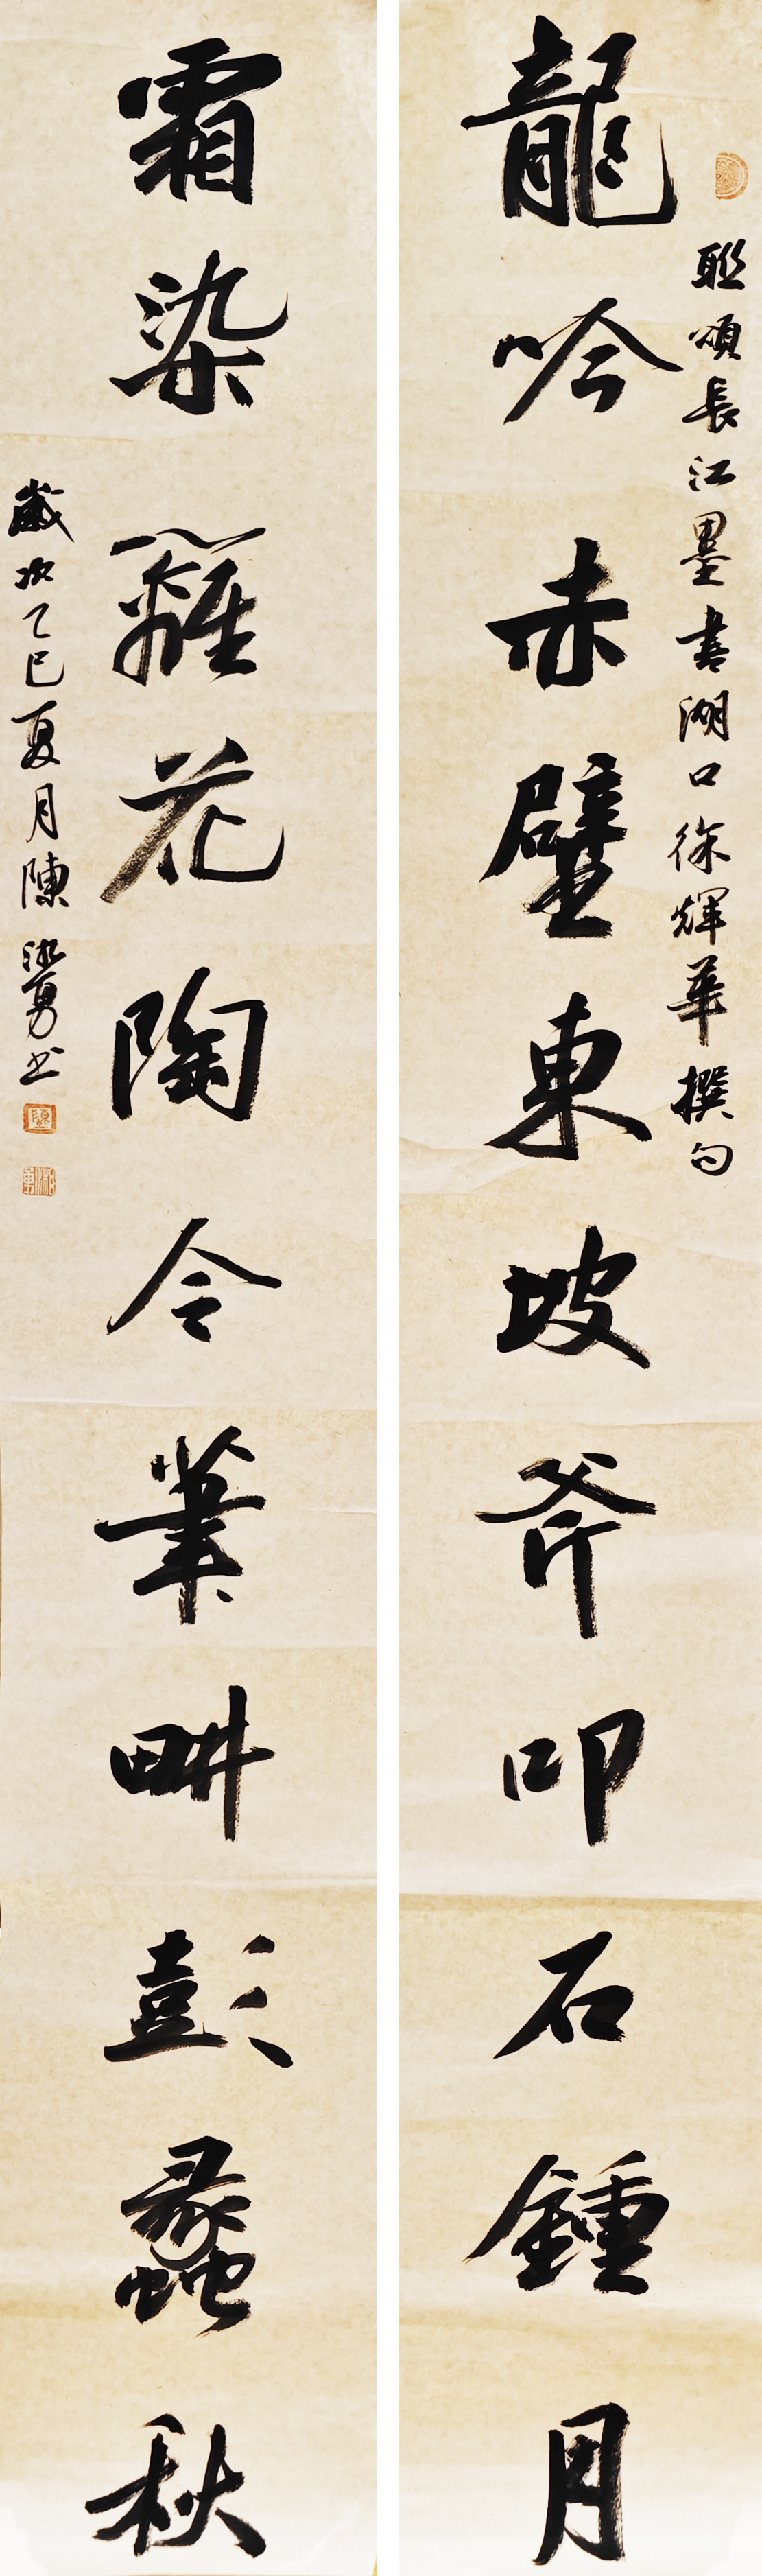 聯頌長江墨書湖口徐輝華撰句
龍吟赤壁東坡斧叩石鍾月
霜染籬花陶令筆畊彭蠡秋
歲次乙巳夏月陳湘勇书